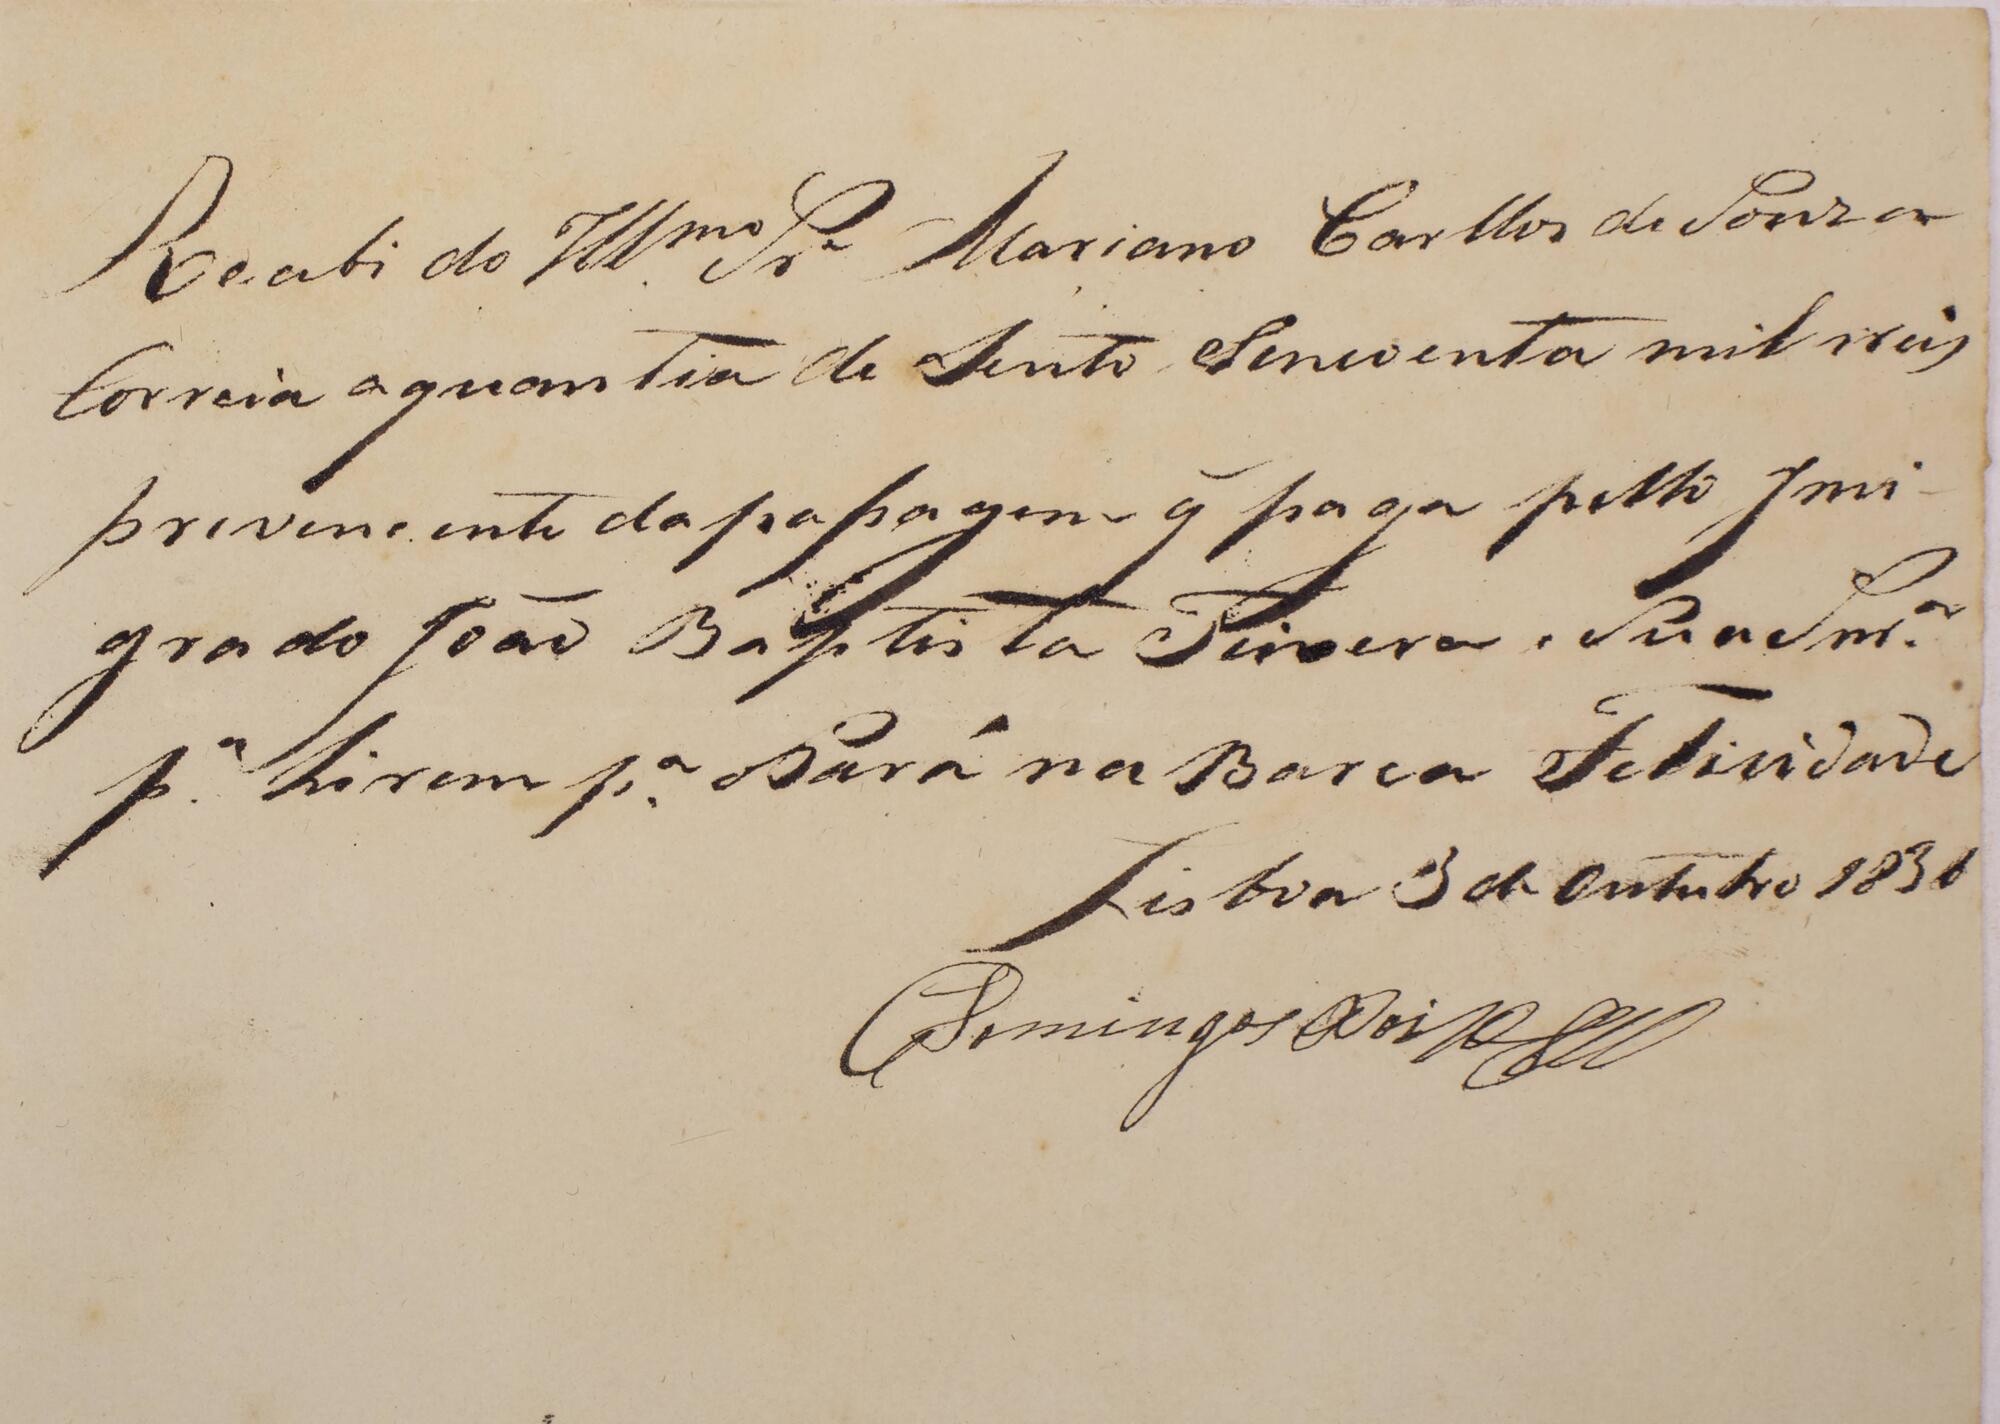 Recabi do Illmo Sr Mariano Carllos de Souza
Correia a quantia de Sento Sencoenta mil reis
preveneente da papagem q̃ paga pello Imi-
grado João Baptista e Sua Snra
pa hirem pa Pará na Barca Felicidade
Lisboa 3 de Outubro 183
Domingos